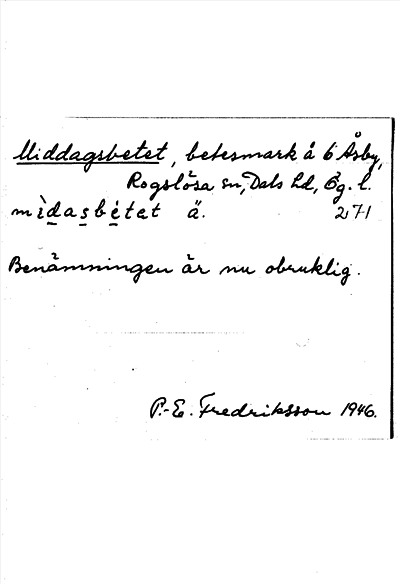 Middagsbetet, betesmark å 6 Åsby,
Rogslösa sn, Dals hd, Ög. l.
mìdasbétet ä. 2/71
Benämningen är nu obruklig.
P.-E. Fredriksson 1946.